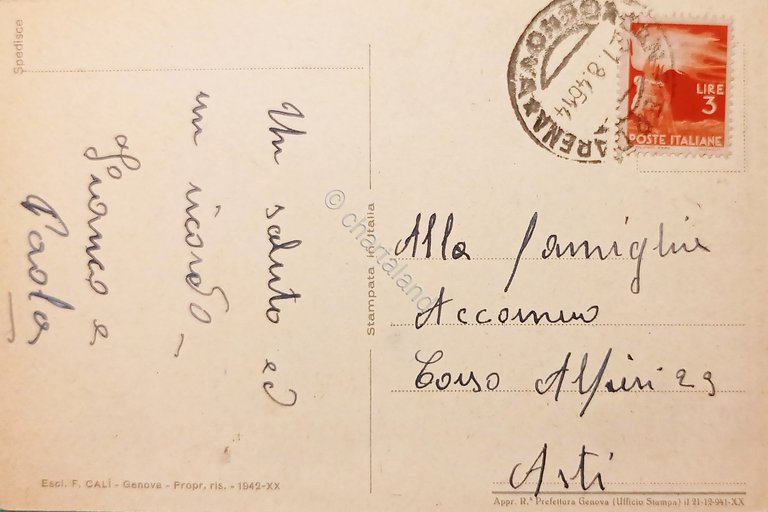 Spedisce
Un saluto ed
un ricordo -
Franco e
Paola
Stampata in Italia
© chartaland
LIRE
3
POSTE ITALIANE
ARENA
1 8.46 14
Alla famiglia
Accomero
Corso Alfieri 29
Asti
Escl. F. CALÌ - Genova - Propr. ris. - 1942-XX
Appr. R.ª Prefettura Genova (Ufficio Stampa) il 21-12-941-XX